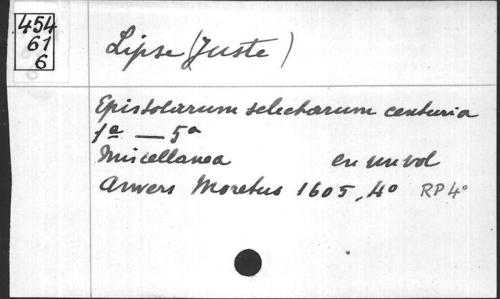 454
61
6
Lipse (Juste)
Epistolarum selectarum centuria
1a — 5a
Miscellanea en un vol
Anvers Moretus 1605, 4o RP 4o